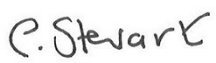 C. Stewart